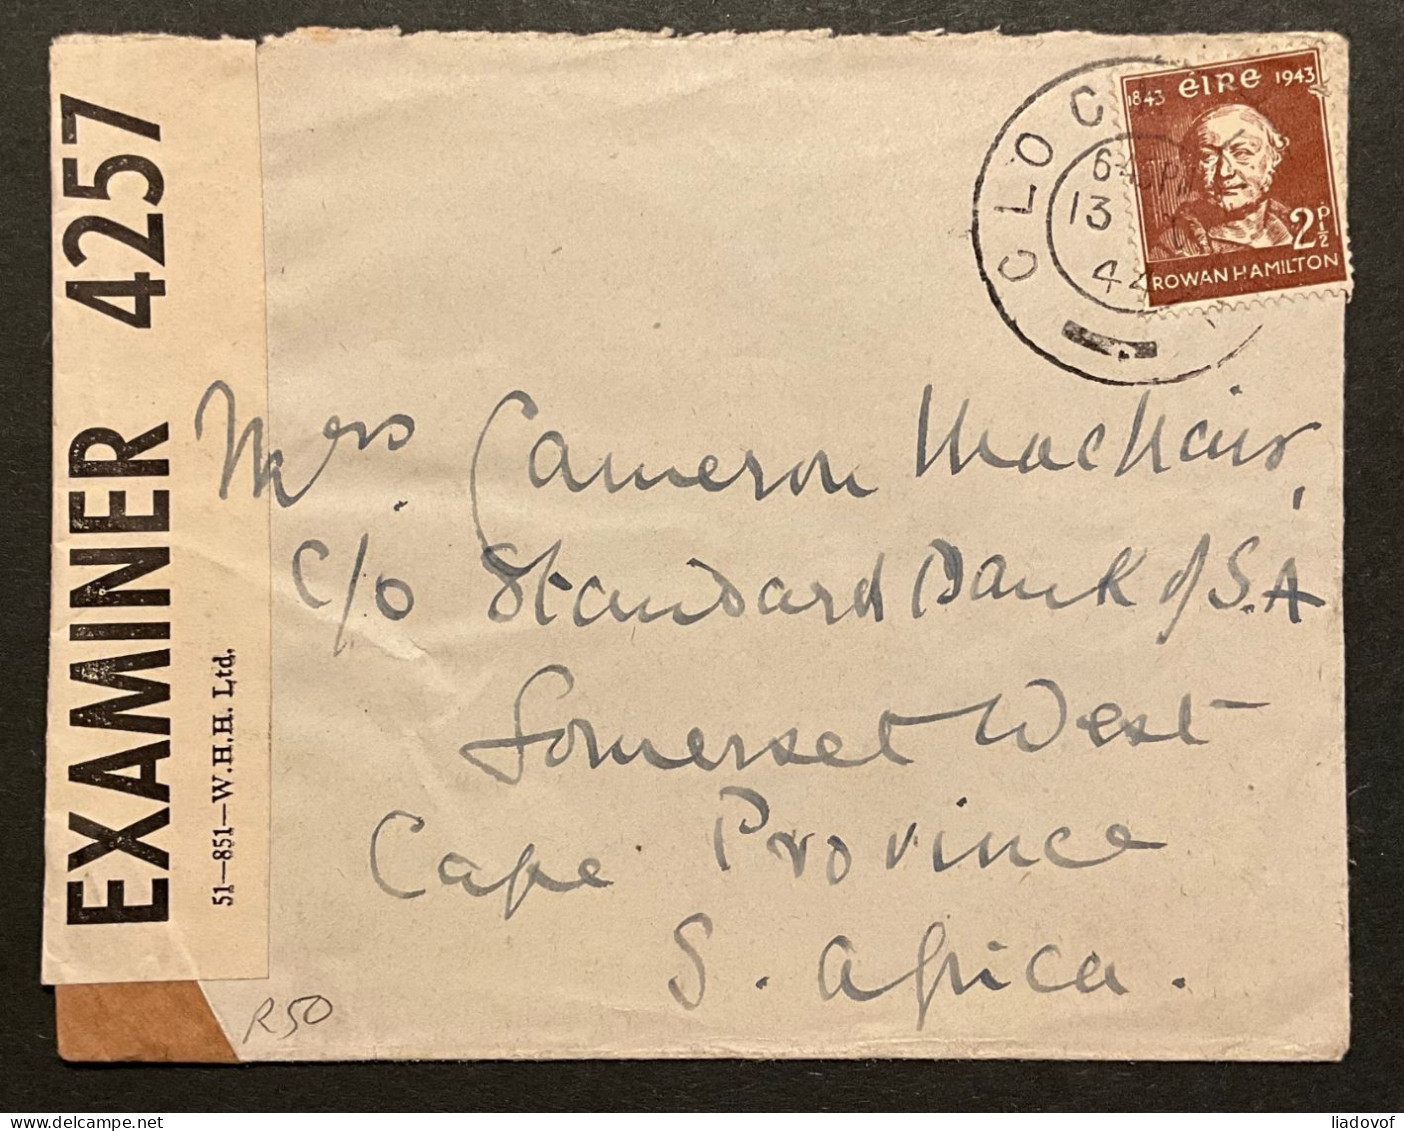 EXAMINER 4257
51—851—W.H.H. Ltd.
CLO
13
1843 éIRe 1943
2P½
ROWAN HAMILTON
Mrs. Cameron MacNair,
c/o Standard Bank of S.A
Somerset West
Cape Province
S. Africa.
R50
liadovof